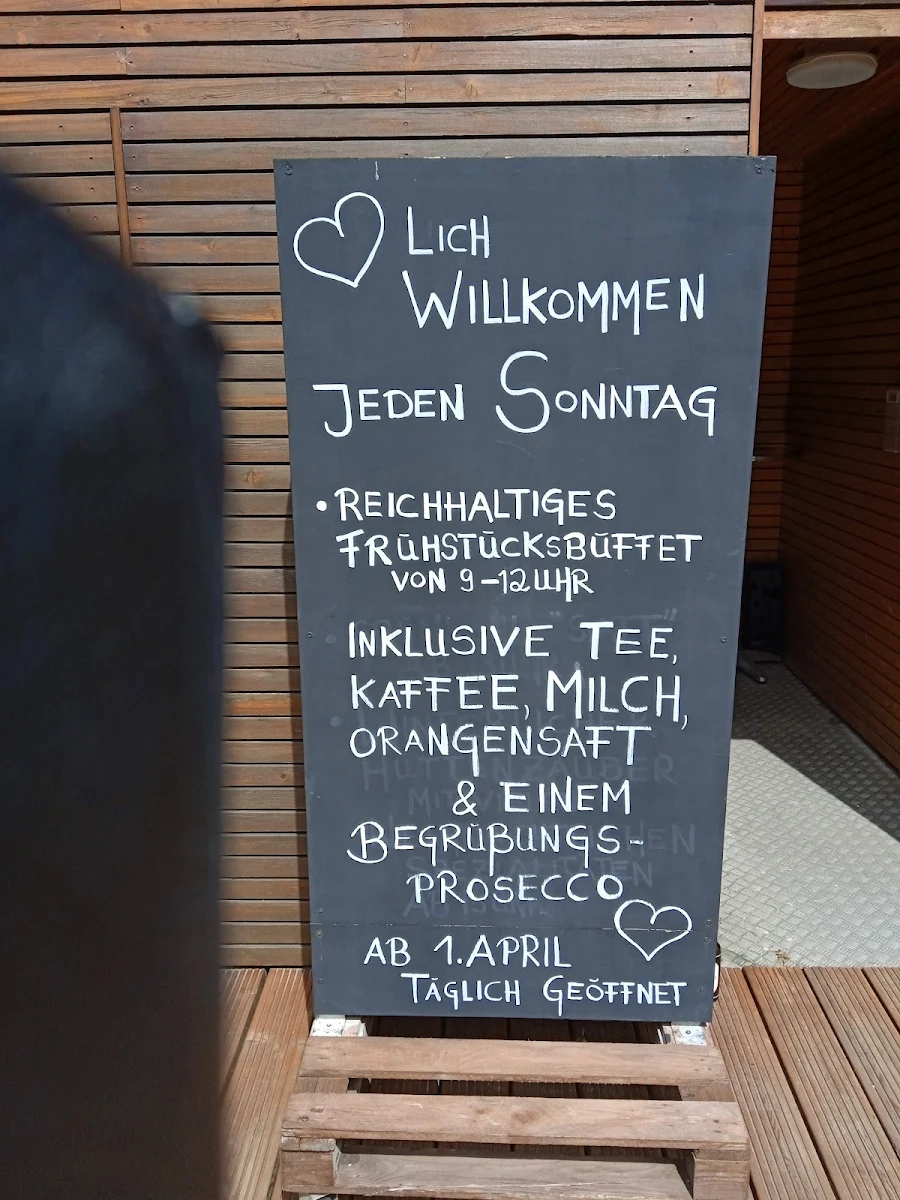 LICH
WILLKOMMEN
JEDEN SONNTAG
• REICHHALTIGES
FRÜHSTÜCKSBÜFFET
VON 9-12 UHR
INKLUSIVE TEE,
KAFFEE, MILCH,
ORANGENSAFT
& EINEM
BEGRÜßUNGS-
PROSECCO
AB 1. APRIL
TÄGLICH GEÖFFNET